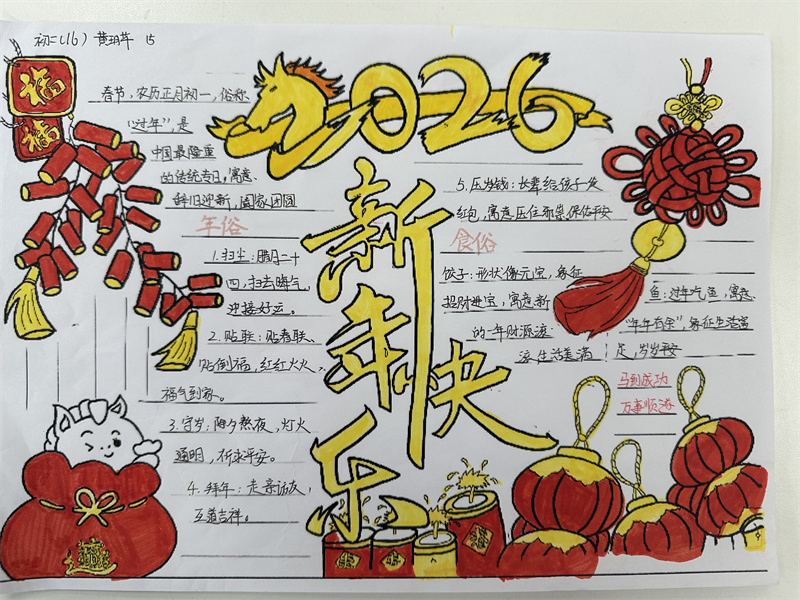 初二(16) 黄玥苹 15
福
福
2026
新年快乐
春节,农历正月初一,俗称
“过年”,是
中国最隆重
的传统节日。寓意
辞旧迎新,阖家团圆
年俗
1.扫尘:腊月二十
四,扫去晦气,
迎接好运。
2.贴联:贴春联、
贴倒福,红红火火、
福气到家。
3.守岁:除夕熬夜,灯火
通明,祈求平安。
4.拜年:走亲访友,
互道吉祥。
5.压岁钱:长辈给孩子发
红包,寓意压住邪祟保佑平安
食俗
饺子:形状像元宝,象征
招财进宝,寓意新
的一年财源滚
滚,生活美满
鱼:过年吃鱼,寓意
“年年有余”,象征生活富
足,岁岁平安
马到成功
万事顺遂